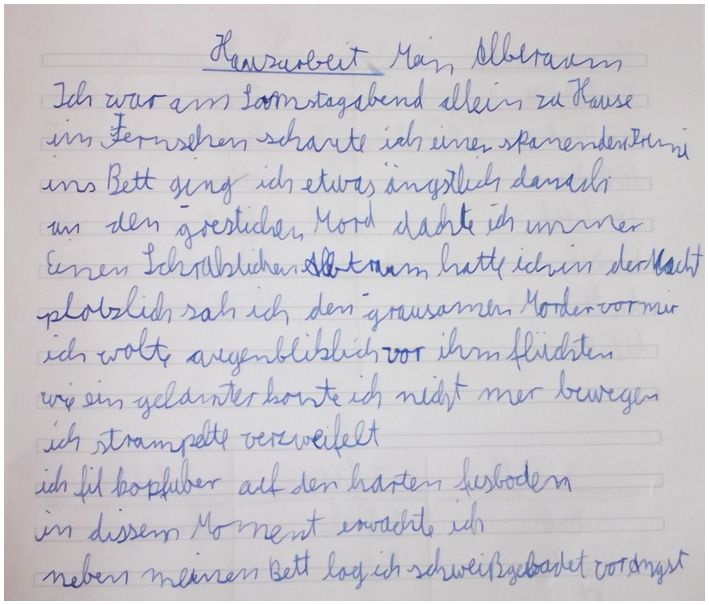 Hausarbeit Mein Albtraum
Ich war am Samstagabend allein zu Hause
im Fernsehen schaute ich einen spanenden Krimi
ins Bett ging ich etwas ängstlich danach
an den greslichen Mord dachte ich immer
Einen Schräklichen Albtraum hatte ich in der Nacht
plotzlich sah ich den grausamen Morder vor mir
ich wolte augenbliklich vor ihm flüchten
wie ein gelämter konte ich nicht mer bewegen
ich strampelte verzweifelt
ich fil kopfuber auf den harten fusboden
in dissem Moment erwachte ich
neben meinen Bett lag ich schweißgebadet vor Angst